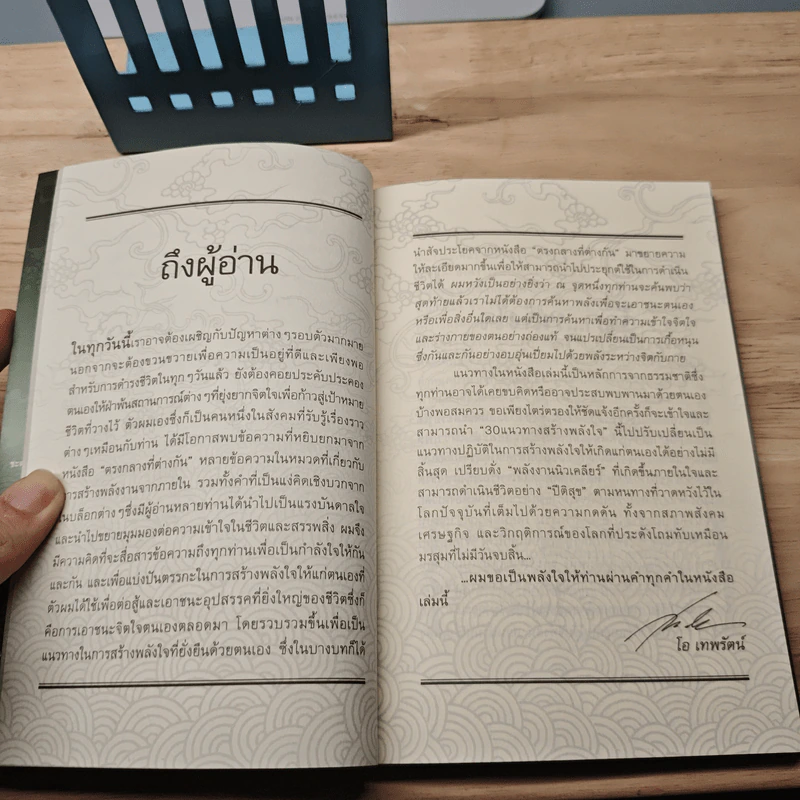 ถึงผู้อ่าน
ในทุกวันนี้เราอาจต้องเผชิญกับปัญหาต่างๆรอบตัวมากมาย
นอกจากจะต้องขวนขวายเพื่อความเป็นอยู่ที่ดีและเพียงพอ
สำหรับการดำรงชีวิตในทุกๆวันแล้ว ยังต้องคอยประคับประคอง
ตนเองให้ฝ่าฟันสถานการณ์ต่างๆที่ยุ่งยากจิตใจเพื่อก้าวสู่เป้าหมาย
ชีวิตที่วางไว้ ตัวผมเองซึ่งก็เป็นคนหนึ่งในสังคมที่รับรู้เรื่องราว
ต่างๆเหมือนกับท่าน ได้มีโอกาสพบข้อความที่หยิบยกมาจาก
หนังสือ "ตรงกลางที่ต่างกัน" หลายข้อความในหมวดที่เกี่ยวกับ
การสร้างพลังงานจากภายใน รวมทั้งคำที่เป็นแง่คิดเชิงบวกจาก
ในบล็อกต่างๆซึ่งมีผู้อ่านหลายท่านได้นำไปเป็นแรงบันดาลใจ
และนำไปขยายมุมมองต่อความเข้าใจในชีวิตและสรรพสิ่ง ผมจึง
มีความคิดที่จะสื่อสารข้อความถึงทุกท่านเพื่อเป็นกำลังใจให้กัน
และกัน และเพื่อแบ่งปันตรรกะในการสร้างพลังใจให้แก่ตนเองที่
ตัวผมได้ใช้เพื่อต่อสู้และเอาชนะอุปสรรคที่ยิ่งใหญ่ของชีวิตซึ่งก็
คือการเอาชนะจิตใจตนเองตลอดมา โดยรวบรวมขึ้นเพื่อเป็น
แนวทางในการสร้างพลังใจที่ยั่งยืนด้วยตนเอง ซึ่งในบางบทก็ได้
นำสัจประโยคจากหนังสือ "ตรงกลางที่ต่างกัน" มาขยายความ
ให้ละเอียดมากขึ้นเพื่อให้สามารถนำไปประยุกต์ใช้ในการดำเนิน
ชีวิตได้ ผมหวังเป็นอย่างยิ่งว่า ณ จุดหนึ่งทุกท่านจะค้นพบว่า
สุดท้ายแล้วเราไม่ได้ต้องการค้นหาพลังเพื่อจะเอาชนะตนเอง
หรือเพื่อสิ่งอื่นใดเลย แต่เป็นการค้นหาเพื่อทำความเข้าใจจิตใจ
และร่างกายของตนอย่างถ่องแท้ จนแปรเปลี่ยนเป็นการเกื้อหนุน
ซึ่งกันและกันอย่างอบอุ่นเปี่ยมไปด้วยพลังระหว่างจิตกับกาย
แนวทางในหนังสือเล่มนี้เป็นหลักการจากธรรมชาติซึ่ง
ทุกท่านอาจได้เคยขบคิดหรืออาจประสบพบพานมาด้วยตนเอง
บ้างพอสมควร ขอเพียงไตร่ตรองให้ชัดแจ้งอีกครั้งก็จะเข้าใจและ
สามารถนำ "30แนวทางสร้างพลังใจ" นี้ไปปรับเปลี่ยนเป็น
แนวทางปฏิบัติในการสร้างพลังใจให้เกิดแก่ตนเองได้อย่างไม่มี
สิ้นสุด เปรียบดั่ง "พลังงานนิวเคลียร์" ที่เกิดขึ้นภายในใจและ
สามารถดำเนินชีวิตอย่าง "ปีติสุข" ตามหนทางที่วาดหวังไว้ใน
โลกปัจจุบันที่เต็มไปด้วยความกดดัน ทั้งจากสภาพสังคม
เศรษฐกิจ และวิกฤติการณ์ของโลกที่ประดังโถมทับเหมือน
มรสุมที่ไม่มีวันจบสิ้น...
...ผมขอเป็นพลังใจให้ท่านผ่านคำทุกคำในหนังสือ
เล่มนี้
โอ เทพรัตน์